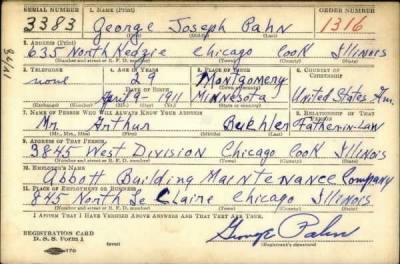 SERIAL NUMBER 1. NAME (Print) ORDER NUMBER
3383 George Joseph Pahn 1316
(First) (Middle) (Last)
2. ADDRESS (Print)
635 North Kedzie Chicago Cook Illinois
(Number and street or R. F. D. number) (Town) (County) (State)
3. TELEPHONE 4. AGE IN YEARS 5. PLACE OF BIRTH 6. COUNTRY OF CITIZENSHIP
none 29 Montgomery
DATE OF BIRTH (Town or county)
April 9- 1911 Minnesota United States Am.
(Exchange) (Number) (Mo.) (Day) (Yr.) (State or country)
7. NAME OF PERSON WHO WILL ALWAYS KNOW YOUR ADDRESS 8. RELATIONSHIP OF THAT PERSON
Mr Arthur Buehler Father-in-Law
(Mr., Mrs., Miss) (First) (Middle) (Last)
9. ADDRESS OF THAT PERSON
3845 West Division Chicago Cook Illinois
(Number and street or R. F. D. number) (Town) (County) (State)
10. EMPLOYER'S NAME
Abbott Building Maintenance Company
11. PLACE OF EMPLOYMENT OR BUSINESS
845 North Le Claire Chicago Illinois
(Number and street or R. F. D. number) (Town) (County) (State)
I AFFIRM THAT I HAVE VERIFIED ABOVE ANSWERS AND THAT THEY ARE TRUE.
REGISTRATION CARD
D. S. S. Form 1 George Pahn
(over) (Registrant's signature)